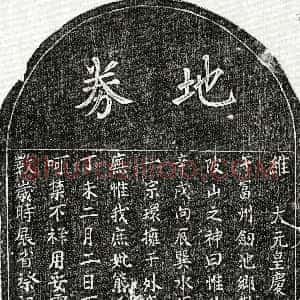 地券
維 大元皇慶
富州劒池鄉
山之神曰惟
戌向辰巽水
宗環擁于外
惟我庶此藏
丁未二月二日
呵禁不祥用妥
歲時展省祭